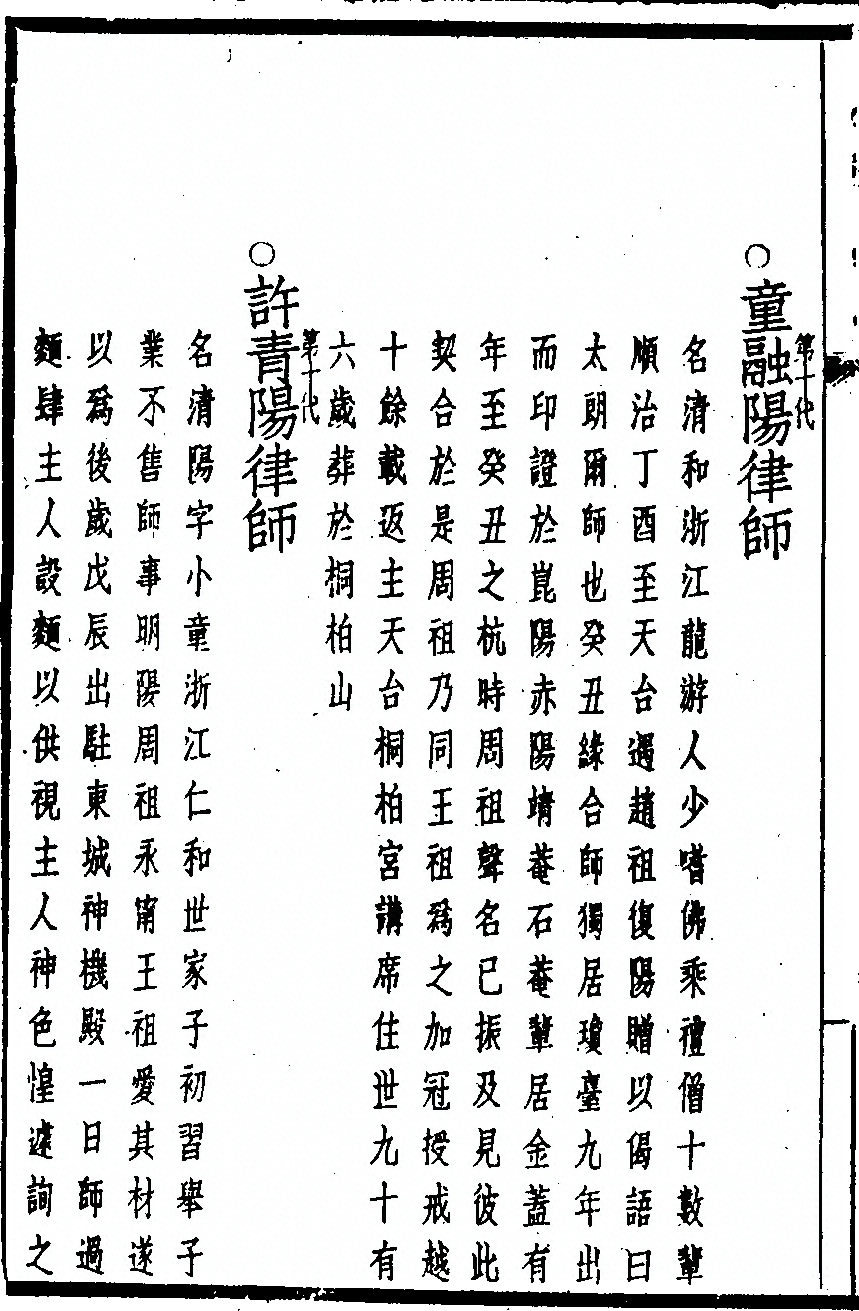 第十代
○童融陽律師
名清和浙江龍游人少嗜佛乘禮僧十數輩
順治丁酉至天台遇趙祖復陽贈以偈語曰
太朗爾師也癸丑緣合師獨居瓊臺九年出
而印證於崑陽赤陽靖菴石菴輩居金蓋有
年至癸丑之杭時周祖聲名已振及見彼此
契合於是周祖乃同王祖爲之加冠授戒越
十餘載返主天台桐柏宮講席住世九十有
六歲葬於桐柏山
第十代
○許青陽律師
名清陽字小童浙江仁和世家子初習舉子
業不售師事明陽周祖永甯王祖愛其材遂
以爲後歲戊辰出駐東城神機殿一日師過
麵肆主人設麵以供視主人神色惶遽詢之